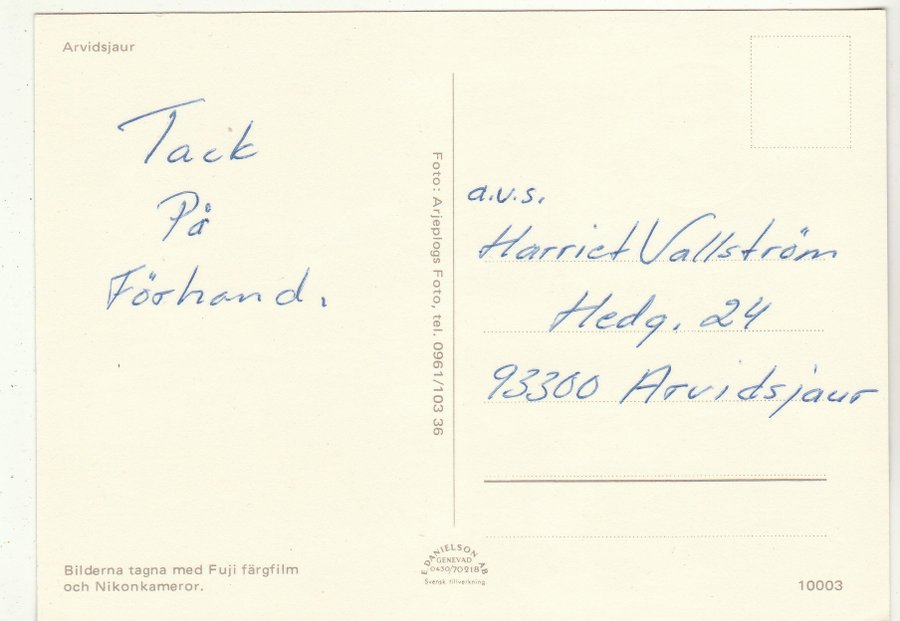 Arvidsjaur
Tack
På
Förhand.
Foto: Arjeplogs Foto, tel. 0961/103 36
a.v.s.
Harriet Vallström
Hedg. 24
93300 Arvidsjaur
Bilderna tagna med Fuji färgfilm
och Nikonkameror.
E. DANIELSON AB
GENEVAD
0430/70218
Svensk tillverkning.
10003